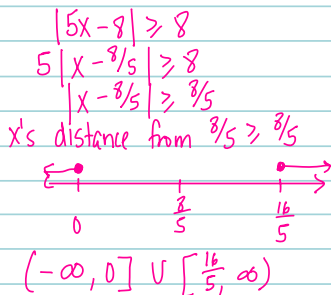 |5x-8| ≥ 8
5|x-8/5| ≥ 8
|x-8/5| ≥ 8/5
x's distance from 8/5 ≥ 8/5
0 8/5 16/5
(-∞, 0] ∪ [16/5, ∞)